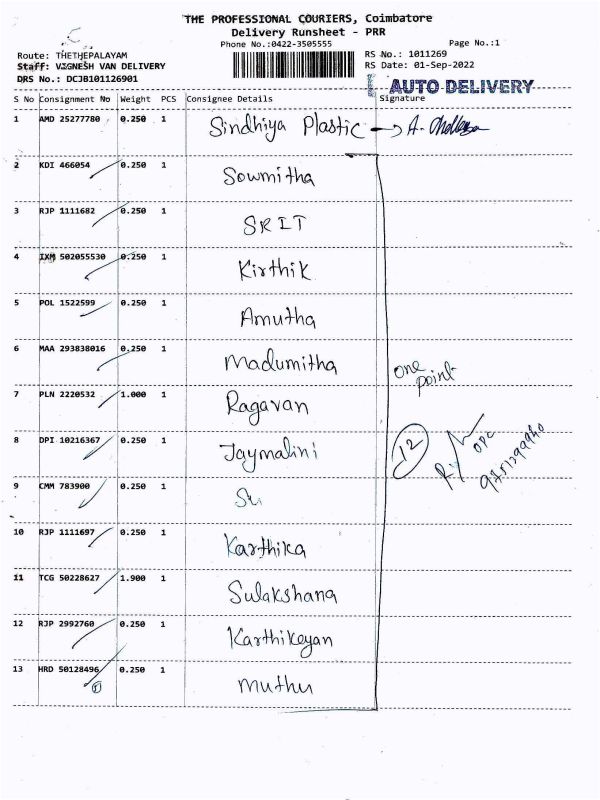 THE PROFESSIONAL COURIERS, Coimbatore
Delivery Runsheet - PRR
Phone No.:0422-3505555 Page No.:1
Route: THETHEPALAYAM RS No.: 1011269
Staff: VIGNESH VAN DELIVERY RS Date: 01-Sep-2022
DRS No.: DCJB101126901 AUTO DELIVERY
S No Consignment No Weight PCS Consignee Details Signature
1 AMD 25277780 0.250 1 Sindhiya Plastic
2 KDI 466054 0.250 1 Sowmitha
3 RJP 1111682 0.250 1 SRIT
4 IXM 502055530 0.250 1 Kirthik
5 POL 1522599 0.250 1 Amutha
6 MAA 293838016 0.250 1 Madumitha
one point
7 PLN 2220532 1.000 1 Ragavan
8 DPI 10216367 0.250 1 Jaymalini
12
9 CMM 783900 0.250 1
10 RJP 1111697 0.250 1 Karthika
11 TCG 50228627 1.900 1 Sulakshana
12 RJP 2992760 0.250 1 Karthikeyan
13 HRD 50128496 0.250 1 Muthu